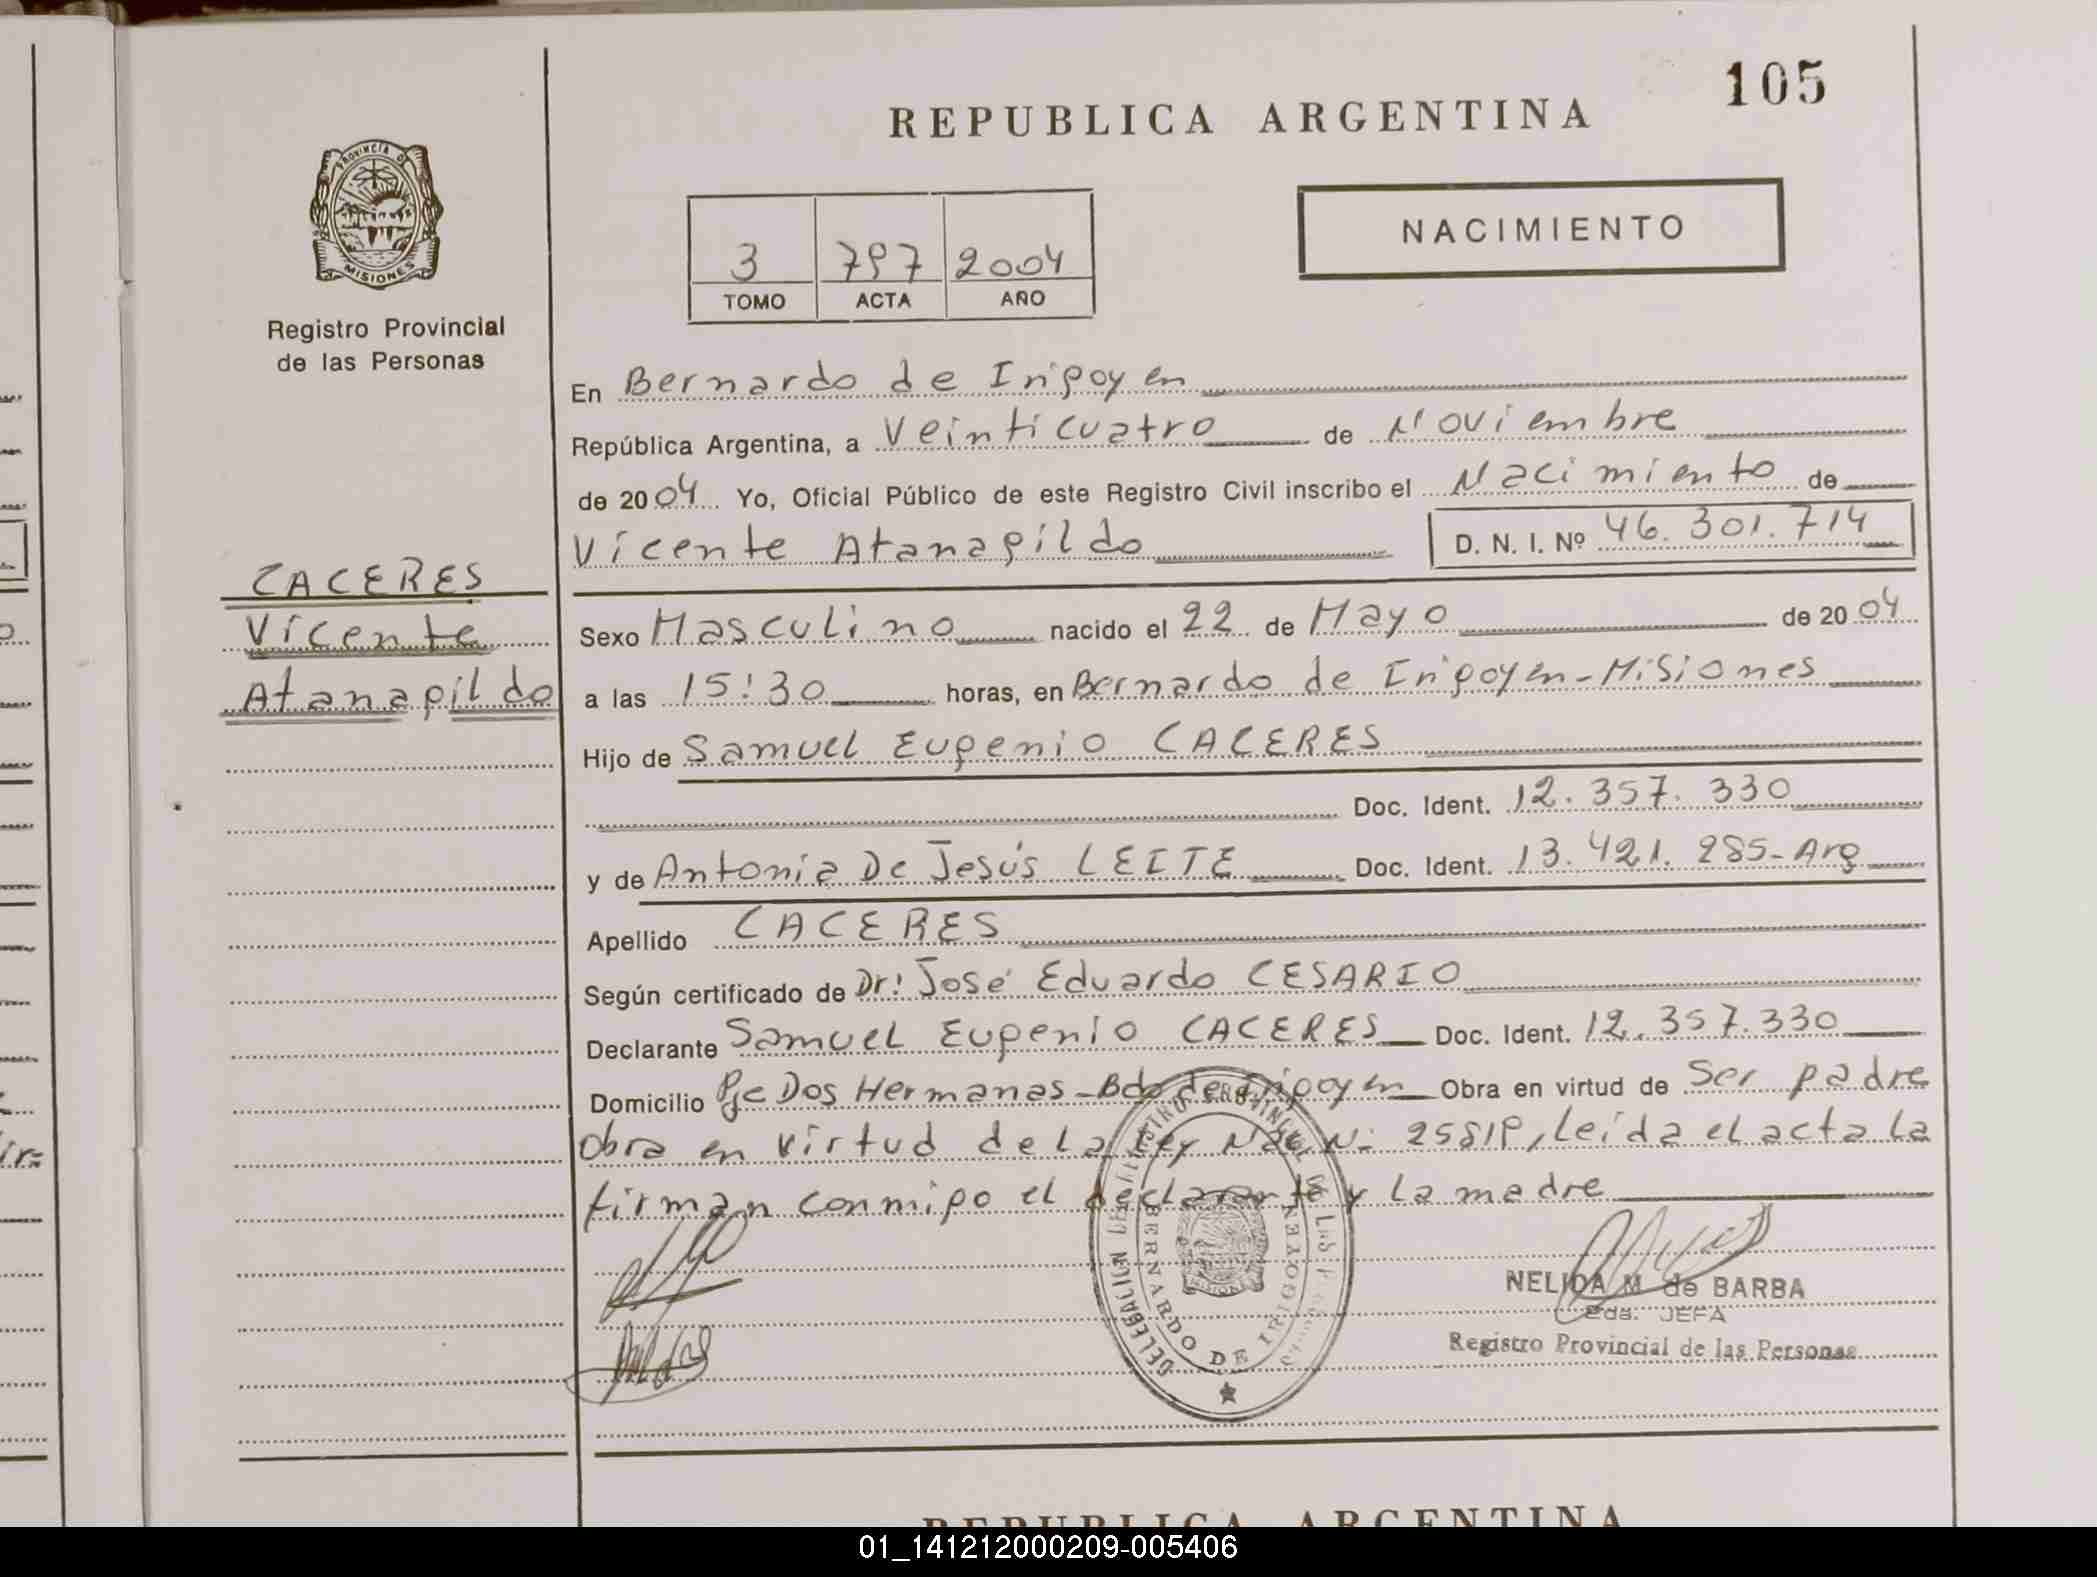 105
REPUBLICA ARGENTINA
PROVINCIA DE
MISIONES
Registro Provincial
de las Personas
NACIMIENTO
3 797 2004
TOMO ACTA AÑO
En Bernardo de Irigoyen
República Argentina, a Veinticuatro de Noviembre
de 2004 Yo, Oficial Público de este Registro Civil inscribo el Nacimiento de
Vicente Atanagildo D. N. I. Nº 46.301.714
CACERES
Vicente
Atanagildo
Sexo Masculino nacido el 22 de Mayo de 2004
a las 15:30 horas, en Bernardo de Irigoyen-Misiones
Hijo de Samuel Eugenio CACERES
Doc. Ident. 12.357.330
y de Antonia De Jesús LEITE Doc. Ident. 13.421.285-Arg
Apellido CACERES
Según certificado de Dr: José Eduardo CESARIO
Declarante Samuel Eugenio CACERES Doc. Ident. 12.357.330
Domicilio Pje Dos Hermanas-Bdo de Irigoyen Obra en virtud de Ser padre
Obra en virtud de la Ley Nac N: 25819, leída el acta la
firman conmigo el declarante y la madre
DELEGACION REGISTRO PROVINCIAL DE LAS
BERNARDO DE IRIGOYEN
NELIDA M. de BARBA
Eda. JEFA
Registro Provincial de las Personas
REPUBLICA ARGENTINA
01_141212000209-005406